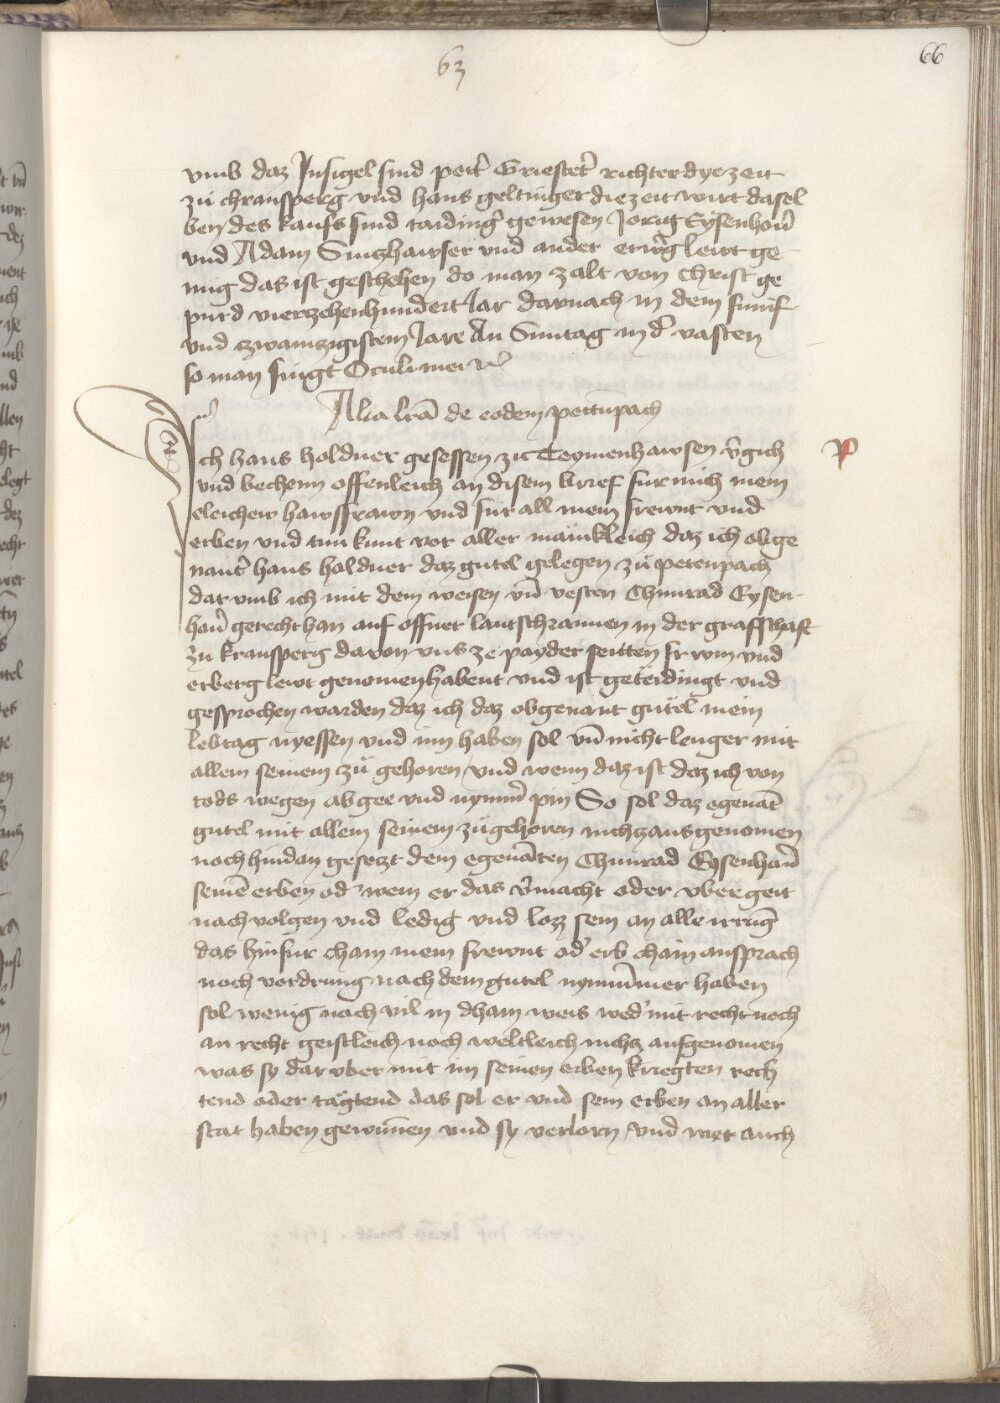 63
66
vmb daz Insigel sind pett Griestet richter dye zeit
zu chransperg vnd hans geltinger die zeit wirt dasel
ben des kaufs sind taiding gewesen Jorig Eysenhou
vnd Adam Sinczhawser vnd ander erwg lewt ge
nug das ist geschehen do man zalt von Christ ge
purd vierzehenhundert Jar darnach in dem funf
vnd czwainzigistem Jare An Suntag in d vasten
so man singt Oculi mei
Alia lra de eodem pettnpach
Ich hans holdner gesessen zu Teymenhawsen vgich
vnd bechenn offenleich an disem brief fur mich mein
eleichew hawsfrawn vnd fur all mein frewnt vnd
erben vnd tun kunt vor aller mainkleich daz ich obge
nant hans holdner daz gutel gelegen zu petenpach
dar vmb ich mit dem weisen vn vesten Chunrad Eysen
hau gerecht han auf offner lantschrannen in der grafschaft
zu kransperg davon vns ze payder seitten frum vnd
erberg lewt genomen habent vnd ist geteidingt vnd
gesprochen warden daz ich daz obgenant gutel mein
lebtag nyessen vnd inn haben sol vn nicht lenger mit
allem seinem zu gehoren vnd wenn daz ist daz ich von
tods wegen abgee vnd nymm pin So sol daz egenat
gutel mit allem seinem zugehoren nichz ausgenomen
noch hindan gesetzt dem egenaten Chunrad Eysenhau
seine erben od wem er das vmacht oder vbergeit
nach volgen vnd ledig vnd loz sein an alle irrug
das hinfur chain mein frewnt od erb chain ansprach
noch vordrung nach dem gutel nymmmer haben
sol wenig noch vil in dhain weis wed mit recht noch
an recht geistleich noch weltleich nichz ausgenomen
was sy dar vber mit im seinen erben kriegten rech
tend oder tagtend das sol er vnd sein erben an aller
stat haben gewunnen vnd sy verlorn vnd wer auch